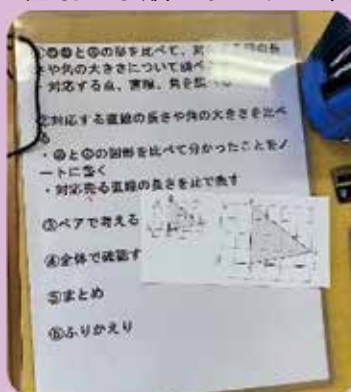 の形を比べて、
さや角の大きさについて
・対応する点、直線、角を
②対応する直線の長さや角の大きさを比べ
る
・㋐と㋑の図形を比べて分かったことをノ
ートに書く
・対応する直線の長さを比で表す
③ペアで考える
④全体で確認す
⑤まとめ
⑥ふりかえり